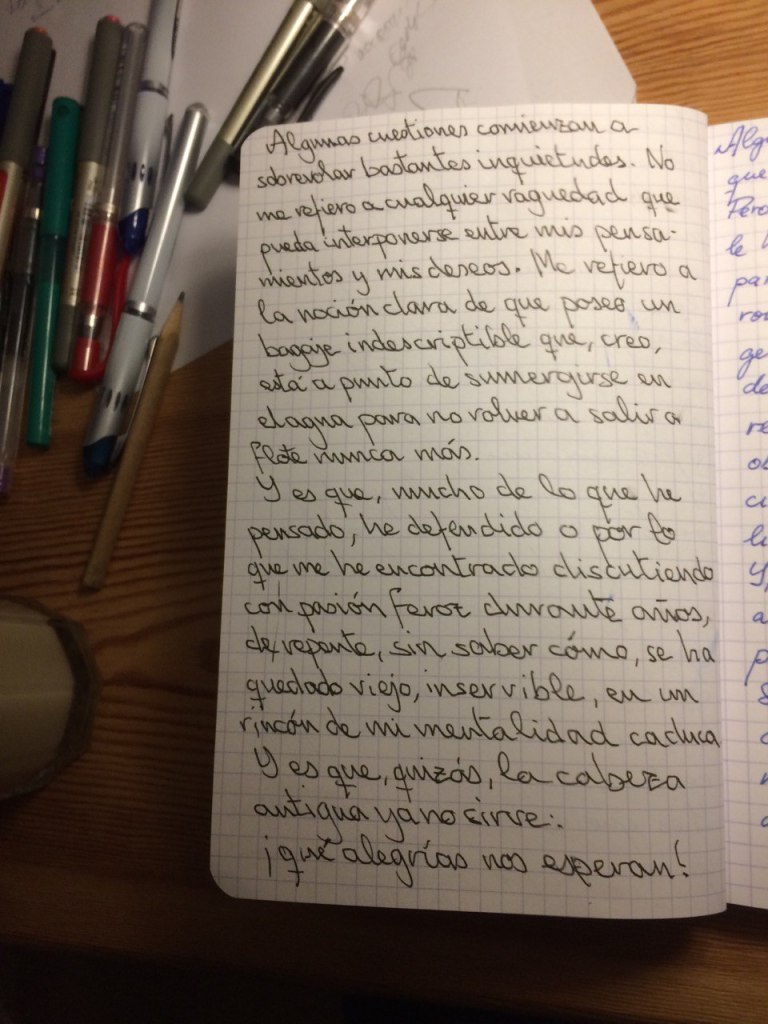 Algunas cuestiones comienzan a
sobrevolar bastantes inquietudes. No
me refiero a cualquier vaguedad que
pueda interponerse entre mis pensa-
mientos y mis deseos. Me refiero a
la noción clara de que poseo un
bagaje indescriptible que, creo,
está a punto de sumergirse en
el agua para no volver a salir a
flote nunca más.
Y es que, mucho de lo que he
pensado, he defendido o por lo
que me he encontrado discutiendo
con pasión feroz durante años,
de repente, sin saber cómo, se ha
quedado viejo, inservible, en un
rincón de mi mentalidad caduca
Y es que, quizás, la cabeza
antigua ya no sirve:
¡qué alegrías nos esperan!
que
le